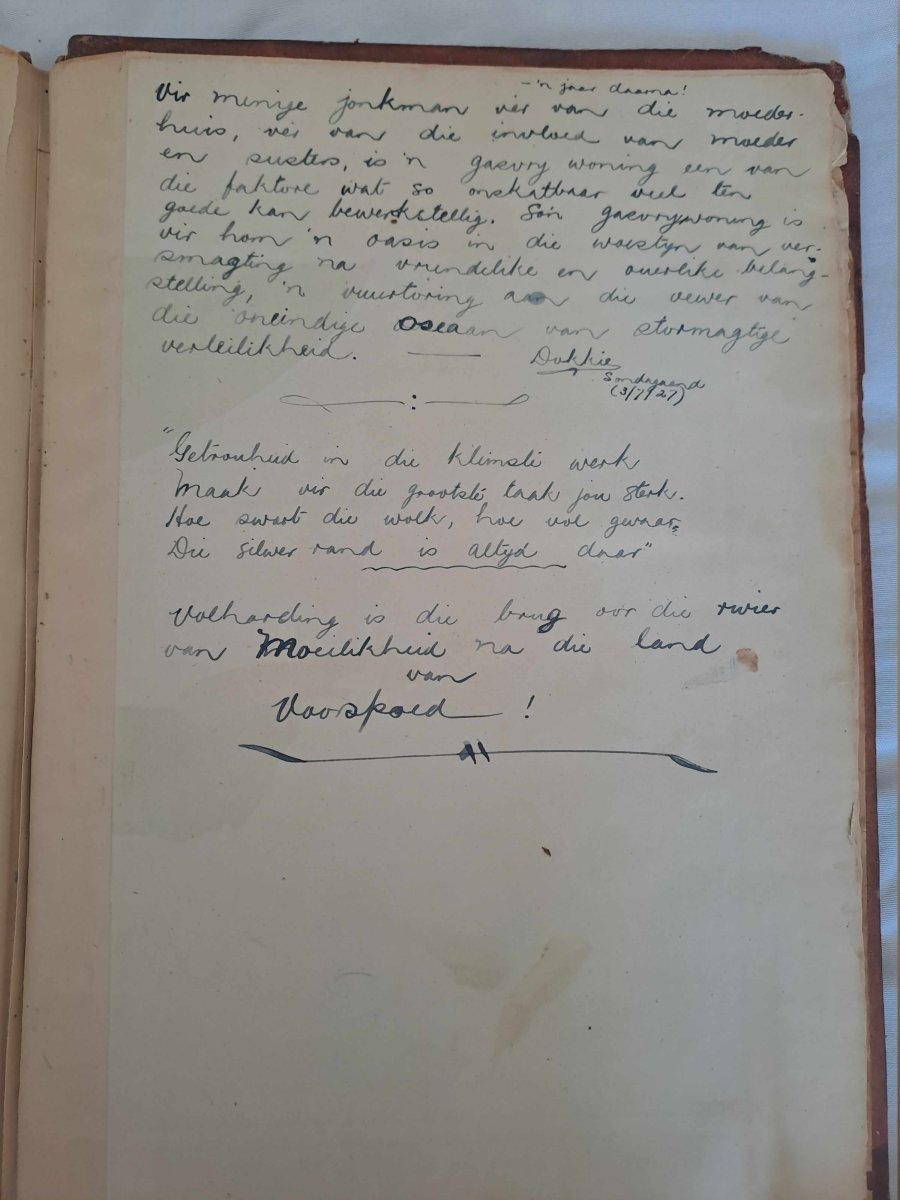 – 'n jaar daarna!
Vir menige jonkman ver van die moeder-
huis, ver van die invloed van moeder
en susters, is 'n gasvry woning een van
die faktore wat so onskatbaar veel ten
goede kan bewerkstellig. So'n gasvrywoning is
vir hom 'n oasis in die woestyn van ver-
smagting na vriendelike en ouerlike belang-
stelling, 'n vuurtoring aan die oewer van
die oneindige oseaan van stormagtige
verleilikheid. Dokkie
Sondagaand
(3/7/27)
"Getrouheid in die kleinste werk
Maak vir die grootste taak jou sterk.
Hoe swart die wolk, hoe vol gevaar,
Die silwer rand is altyd daar"
Volharding is die brug oor die rivier
van Moeilikheid na die land
van
Voorspoed !